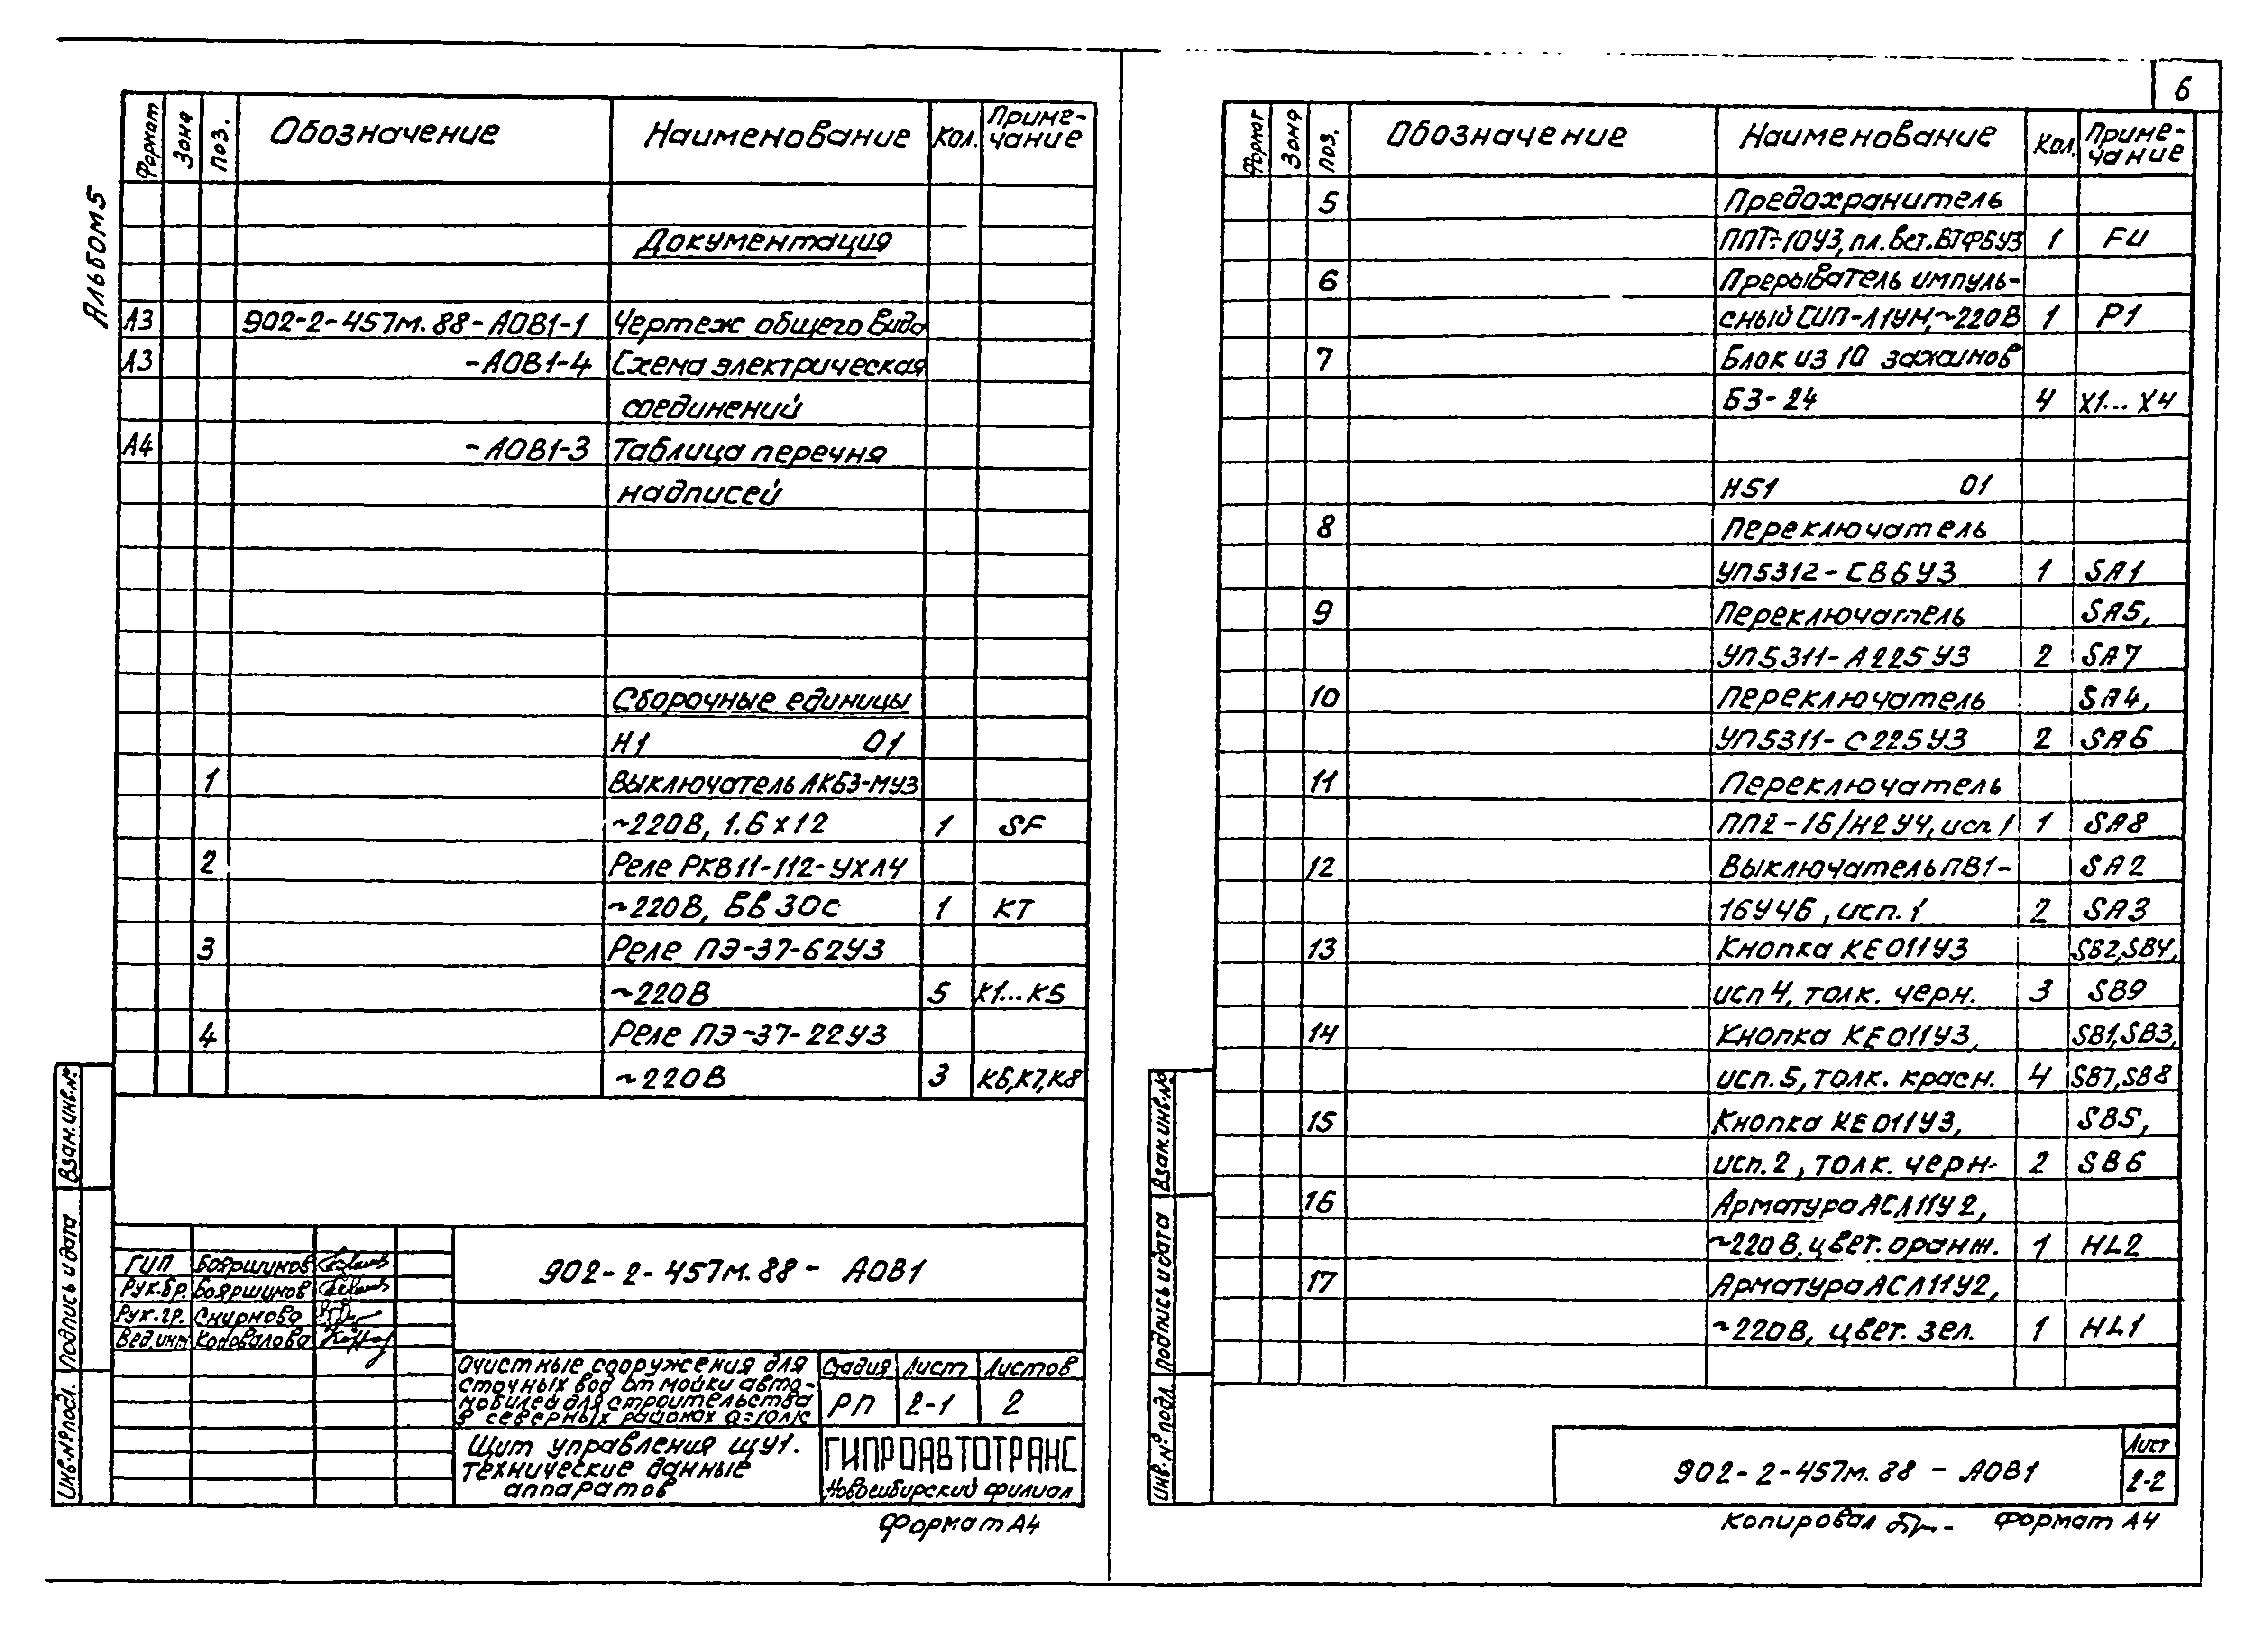 Альбом 5
Формат Зона Поз. Обозначение Наименование Кол. Приме-
чание
Документация
А3 902-2-457м.88-АОВ1-1 Чертеж общего вида
А3 -АОВ1-4 Схема электрическая
соединений
А4 -АОВ1-3 Таблица перечня
надписей
Сборочные единицы
Н1 01
1 Выключатель АК63-МУ3
~220В, 1.6х12 1 SF
2 Реле РКВ11-112-УХЛ4
~220В, ВВ 30с 1 КТ
3 Реле ПЭ-37-62У3
~220В 5 К1...К5
4 Реле ПЭ-37-22У3
~220В 3 К6,К7,К8
Взам.инв.№
Подпись и дата
Инв.№подл.
ГИП Бояршинов
Рук.бр. Бояршинов
Рук.гр. Смирнова
Вед.инж. Коновалова
902-2-457м.88 - АОВ1
Очистные сооружения для
сточных вод от мойки авто-
мобилей для строительства
в северных районах Q=10л/с
Стадия Лист Листов
РП 2-1 2
Щит управления ЩУ1.
Технические данные
аппаратов
ГИПРОАВТОТРАНС
Новосибирский филиал
Формат А4
6
Формат Зона Поз. Обозначение Наименование Кол. Приме-
чание
5 Предохранитель
ППТ-10У3, пл.вст.ВТФ6У3 1 FU
6 Прерыватель импуль-
сный СИП-Л1УМ,~220В 1 Р1
7 Блок из 10 зажимов
БЗ-24 4 Х1...Х4
HS1 01
8 Переключатель
УП5312-С86У3 1 SA1
9 Переключатель SA5,
УП5311-А225У3 2 SA7
10 Переключатель SA4,
УП5311-С225У3 2 SA6
11 Переключатель
ПП2-16/Н2У4, исп.1 1 SA8
12 Выключатель ПВ1- SA2
16У4Б, исп.1 2 SA3
13 Кнопка КЕ011У3 SB2,SB4,
исп 4, толк. черн. 3 SB9
14 Кнопка КЕ011У3, SB1,SB3,
исп.5, толк. красн. 4 SB7,SB8
15 Кнопка КЕ011У3, SB5,
исп.2, толк. черн. 2 SB6
16 Арматура АСЛ11У2,
~220В. цвет. оранж. 1 HL2
17 Арматура АСЛ11У2,
~220В, цвет. зел. 1 HL1
Взам.инв.№
Подпись и дата
Инв.№ подл.
902-2-457м.88 - АОВ1
Лист
2-2
Копировал Формат А4